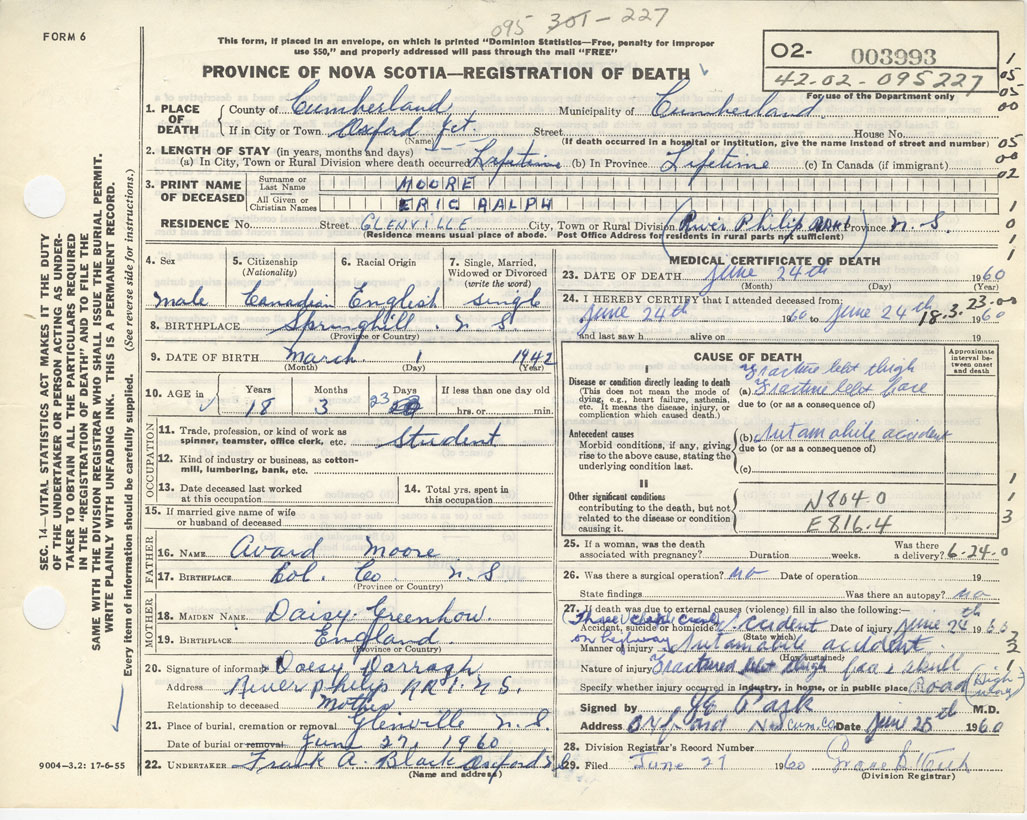 095 301-227
FORM 6
This form, if placed in an envelope, on which is printed "Dominion Statistics—Free, penalty for improper
use $50," and properly addressed will pass through the mail "FREE"
O2- 003993
42-02-095227
For use of the Department only
PROVINCE OF NOVA SCOTIA—REGISTRATION OF DEATH
1. PLACE OF DEATH
County of Cumberland Municipality of Cumberland
If in City or Town Oxford Jct. Street House No.
(Name) (If death occurred in a hospital or institution, give the name instead of street and number)
2. LENGTH OF STAY (in years, months and days)
(a) In City, Town or Rural Division where death occurred Lifetime (b) In Province Lifetime (c) In Canada (if immigrant)
3. PRINT NAME OF DECEASED
Surname or Last Name MOORE
All Given or Christian Names ERIC RALPH
RESIDENCE No. Street GLENVILLE City, Town or Rural Division River Philip Province N. S.
(Residence means usual place of abode. Post Office Address for residents in rural parts not sufficient)
4. Sex male
5. Citizenship (Nationality) Canadian
6. Racial Origin English
7. Single, Married, Widowed or Divorced (write the word) single
8. BIRTHPLACE Springhill N S
(Province or Country)
9. DATE OF BIRTH March 1 1942
(Month) (Day) (Year)
10. AGE in Years 18 Months 3 Days 23 If less than one day old hrs. or min.
OCCUPATION
11. Trade, profession, or kind of work as spinner, teamster, office clerk, etc. Student
12. Kind of industry or business, as cotton-mill, lumbering, bank, etc.
13. Date deceased last worked at this occupation
14. Total yrs. spent in this occupation
15. If married give name of wife or husband of deceased
FATHER
16. NAME Avard Moore
17. BIRTHPLACE Col. Co N S
(Province or Country)
MOTHER
18. MAIDEN NAME Daisy Greenhow
19. BIRTHPLACE England
(Province or Country)
20. Signature of informant Daisy Darragh
Address River Philip RR 1. N. S.
Relationship to deceased Mother
21. Place of burial, cremation or removal Glenville N. S
Date of burial or removal June 27, 1960
22. UNDERTAKER Frank A. Black Oxford N S
(Name and address)
MEDICAL CERTIFICATE OF DEATH
23. DATE OF DEATH June 24th 1960
(Month) (Day) (Year)
24. I HEREBY CERTIFY that I attended deceased from: 23-00
June 24th 1960 to June 24th 1960
18.3.
and last saw h alive on 19
CAUSE OF DEATH
Approximate interval between onset and death
I
Disease or condition directly leading to death
(This does not mean the mode of dying, e.g., heart failure, asthenia, etc. It means the disease, injury, or complication which caused death.)
Fracture left thigh
(a) Fracture face
due to (or as a consequence of)
Antecedent causes
Morbid conditions, if any, giving rise to the above cause, stating the underlying condition last.
(b) Automobile accident
due to (or as a consequence of)
(c)
II
Other significant conditions
contributing to the death, but not related to the disease or condition causing it.
N804 0
E816.4
25. If a woman, was the death associated with pregnancy? Duration weeks. Was there a delivery? 6-24-0
26. Was there a surgical operation? no Date of operation 19
State findings Was there an autopsy? no
27. If death was due to external causes (violence) fill in also the following:—
Accident, suicide or homicide? Accident Date of injury June 24th 19
(State which)
on highway
Manner of injury Automobile accident
(How sustained)
Nature of injury Fractured left thigh face & skull
Specify whether injury occurred in industry, in home, or in public place Road (Highway)
Signed by Park M.D.
Address Oxford N S Cum. Co Date June 25th 1960
28. Division Registrar's Record Number
29. Filed June 27 1960 Grace
(Division Registrar)
SEC. 14—VITAL STATISTICS ACT MAKES IT THE DUTY
OF THE UNDERTAKER OR PERSON ACTING AS UNDER-
TAKER TO OBTAIN ALL THE PARTICULARS REQUIRED
IN THE "REGISTRATION OF DEATH" AND TO FILE THE
SAME WITH THE DIVISION REGISTRAR WHO SHALL ISSUE THE BURIAL PERMIT.
WRITE PLAINLY WITH UNFADING INK. THIS IS A PERMANENT RECORD.
Every item of information should be carefully supplied. (See reverse side for instructions.)
9004—3.2: 17-6-55
1
05
05
00
05
00
02
1
0
0
1
1
1
1
3
3
2
1